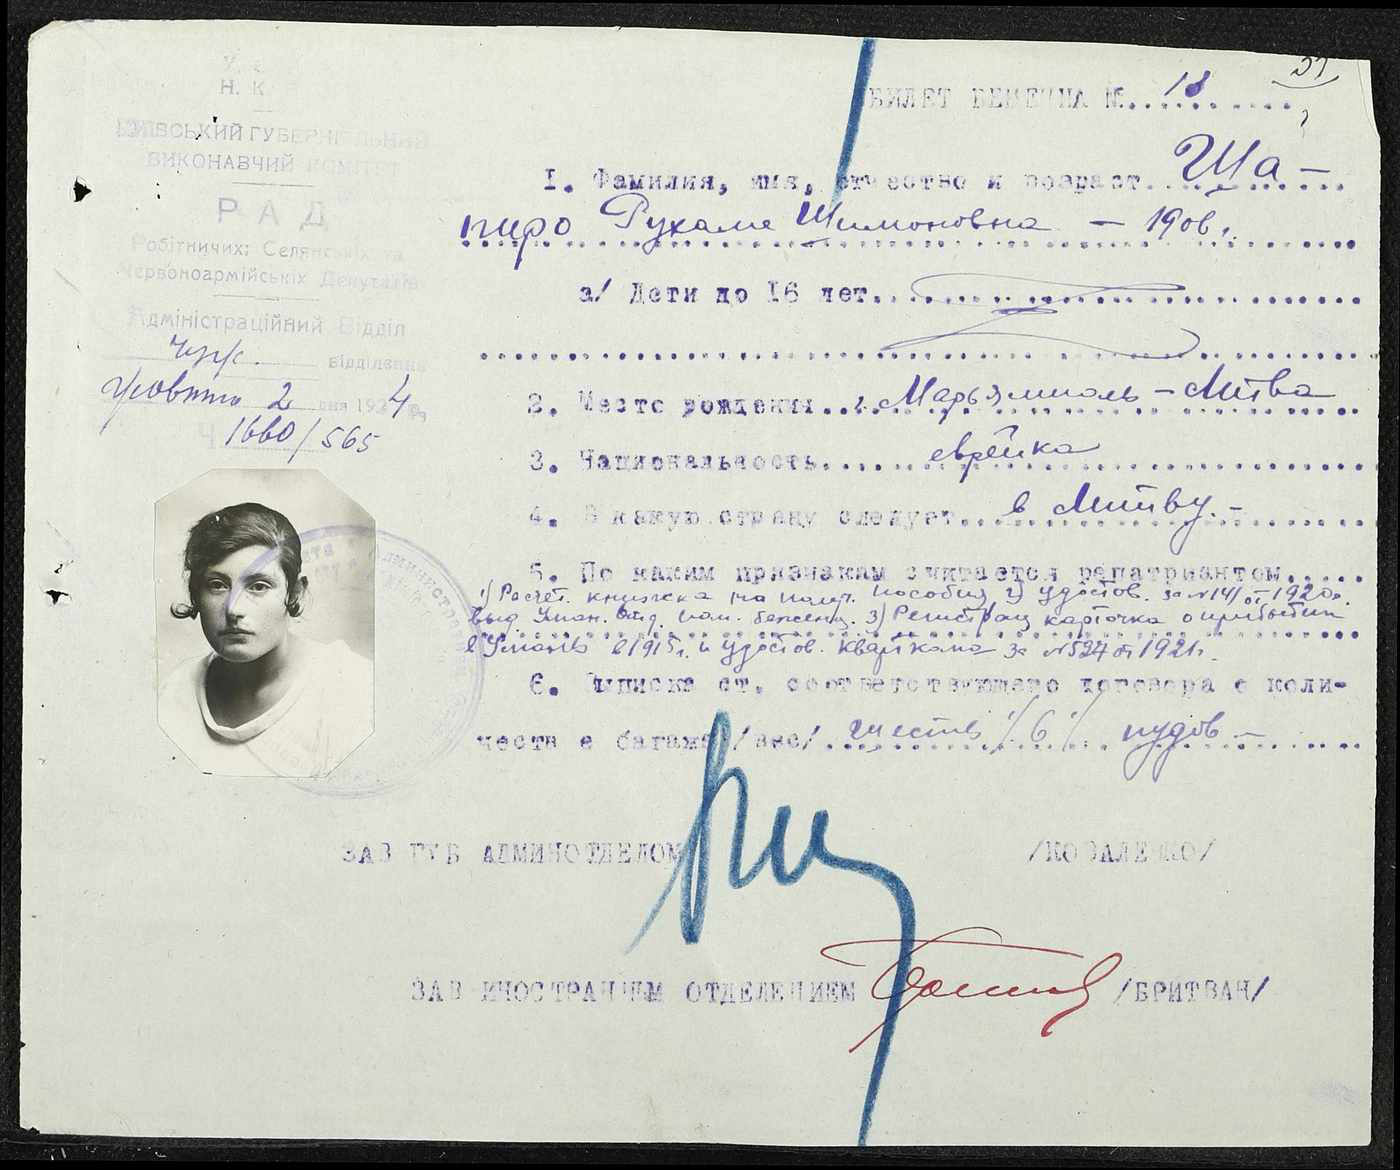 Н. К.
КИЇВСЬКИЙ ГУБЕРНІЯЛЬНИЙ
ВИКОНАВЧИЙ КОМІТЕТ
РАД
Робітничих; Селянських та
Червоноармійськіх Депутатів
Адміністраційний Відділ
Чуж. відділення
Жовтня 2 дня 1924 р.
Ч 1660/565
БИЛЕТ БЕЖЕНЦА №. 18
1. Фамилия, имя, отчество и возраст. Ша-
пиро Рухаме Шимоновна - 1906.
а/ Дети до 16 лет.
2. Место рождения. г. Марьямполь - Литва
3. Национальность. еврейка
4. В какую страну следует. в Литву. -
5. По каким признакам считается репатриантом.
1) Расчет. книжка на получ. пособия 2) удостов. за №141 от 1920г.
выд Уман. Отд. пом. беженц. 3) Регистрац карточка о прибытии
в Умань в 1915г. и удостов. Кварткома за №527 от 1921г.
6. Выписка ст. соответствующаго договора с коли-
честв е багажа /вес/. шесть /6/ пудов -
ЗАВ ГУБ АДМИНОТДЕЛОМ /КОВАЛЕНКО/
ЗАВ ИНОСТРАННЫМ ОТДЕЛЕНИЕМ /БРИТВАН/